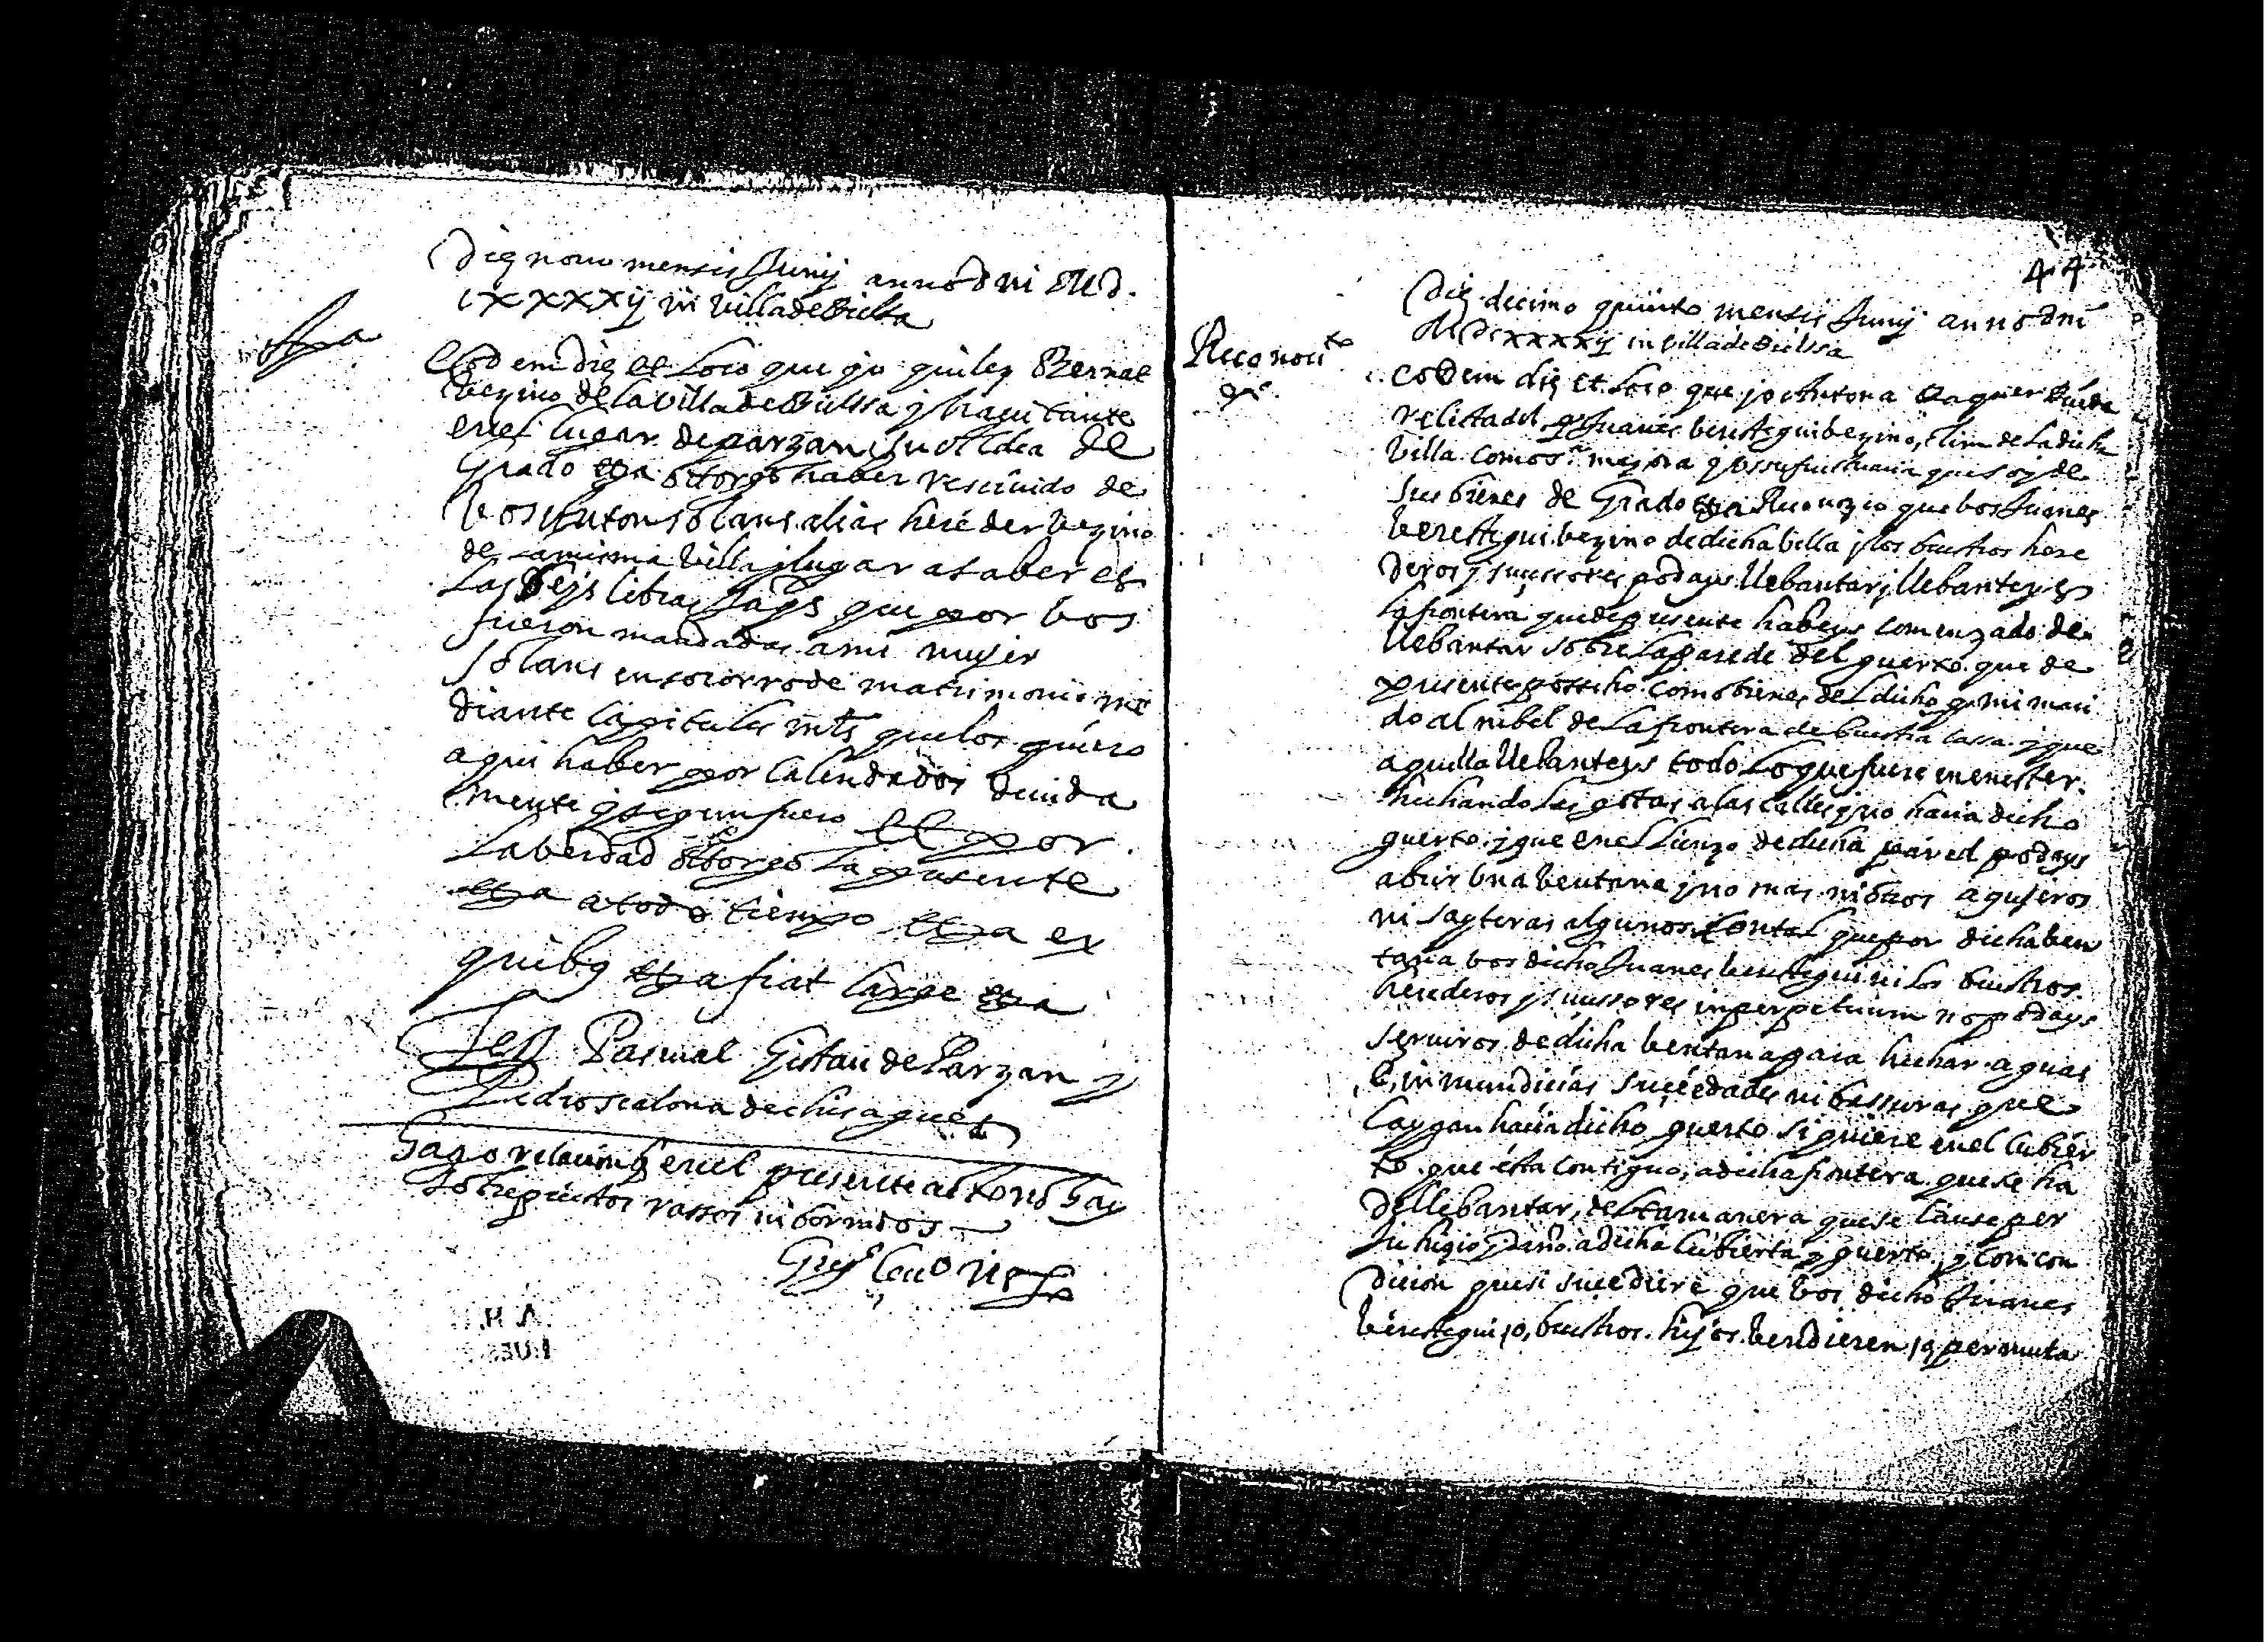 Die nono mensis Junij anno dni M.D.
cxxxxij in villa de Bielsa
Eodem die et loco que yo guilen Bernad
vezino de la villa de Bielssa y havitante
en el lugar de parzan su aldea de
Grado etca otorgo haber rescivido de
bos Anton solans alias here der bezino
de la misma villa y lugar a saber es
las seys libras jaqs que por bos
fueron mandadas a mi mujer
solans en socorro de matrimonio me
diante capitules mts que los quiero
aqui haber por calendados devida
mente y segun fuero et por
la berdad otorgo la presente
etca a todo tiempo etca ex
quibus etca fiat large etca
Tes Pascual Gistau de Parzan y
Pedro scalona de chisagues
Hago relacion q en el presente acto no hay
sobrepuestos rassos ni borrados
44
Die decimo quinto mensis Junij anno dni
MDcxxxxij in villa de Bielssa
Reconocito
Eodem die et loco que yo Antona viuda
relicta del qo Juanes berestegui bezino, de la dicha
villa como sra mayora y ussufructuaria que soy de
sus bienes de Grado etca Reconozco que bos Juanes
berestegui bezino de dicha billa y los buestros here
deros y sucessores podays llebantar y llebanteys
la frontera que de presente habeys comenzado de
llebantar sobre la parede del guerto que de
presente posseho como bienes del dicho qo mi mari
do al nibel de la frontera de buestra cassa y que
aquella llebanteys todo lo que fuere menester
hechando las gotas a las calles y no hacia dicho
guerto y que en el lienzo de dicha pared podays
abrir una bentana y no mas ni otros agujeros
ni sayteras algunos con tal que por dicha ben
tana bos dicho Juanes berestegui ni los buestros
herederos y sucessores in perpetuum no podays
serviros de dicha bentana para hechar aguas
inmundicias suciedades ni bassuras que
caygan hacia dicho guerto siquiere en el cubier
to que esta contiguo a dicha frontera que se ha
de llebantar, de tal manera que se cause per
juhizio y daño a dicha cubierta y guerto y con con
dicion que si sucediere que bos dicho Juanes
berestegui, o, buestros hijos bendieren, o, permuta